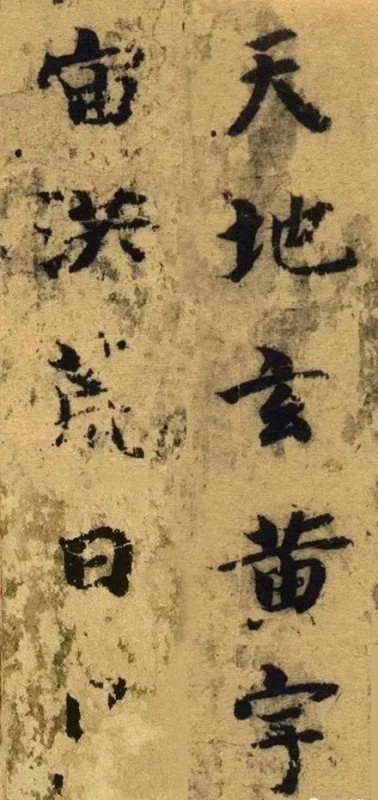 天地玄黄宇
宙洪荒日